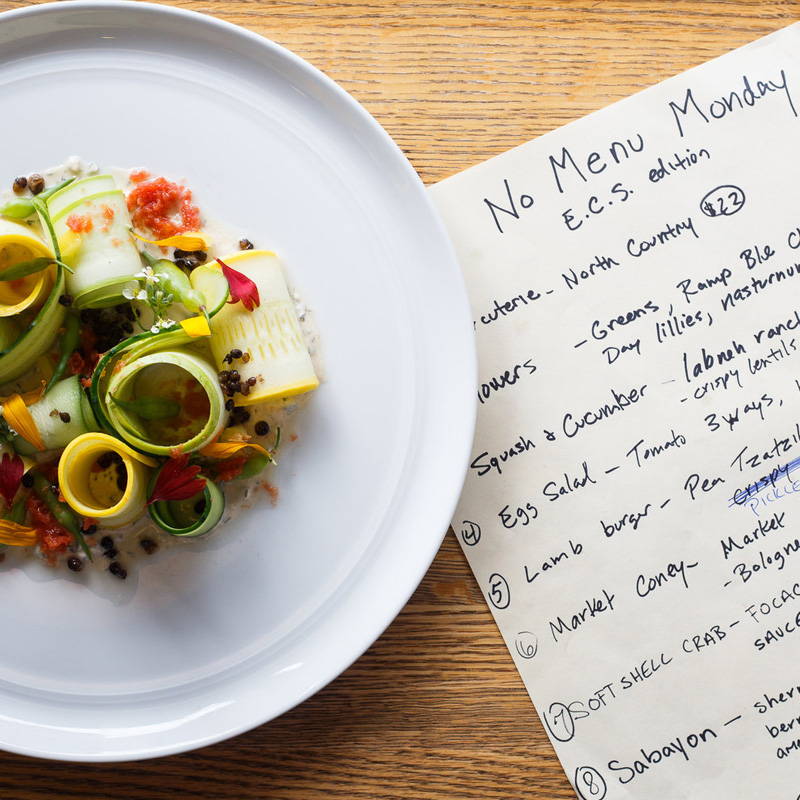 No Menu Monday
E.C.S. edition
cuterie - North Country $22
lowers - Greens, Ramp Ble
Day lillies, nasturnu
Squash & Cucumber - labneh ranc
- crispy lentils
4 Egg Salad - Tomato 3 ways,
5 Lamb burger - Pea Tzatzi
PICKLE
6 Market Coney - Market
- Bologne
7 SOFT SHELL CRAB - FOCAC
SAUCE
8 Sabayon - sher